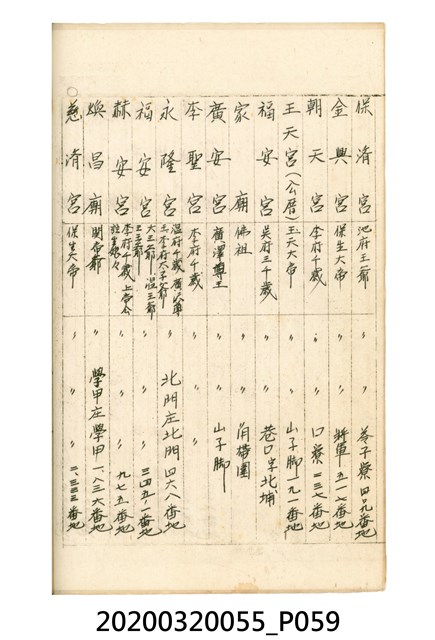 保清宮 池府王爺 〃 〃 苓子寮 四〇九番地
金興宮 保生大帝 〃 〃 將軍 五一七番地
朝天宮 李府千歲 〃 〃 口寮 二三七番地
玉天宮(公厝) 玉天大帝 〃 〃 山子脚 一九一番地
福安宮 吳府三千歲 〃 〃 巷口字北埔
家廟 佛祖 〃 〃 角帶圍
廣安宮 廣澤尊王 〃 〃 山子脚
李聖宮 李府千歲 〃 〃 〃
永隆宮 溫府千歲 北門庄北門 四六八番地
福安宮 大王爺 溫王爺 〃 〃 三四五ノ一番地
赫安宮 李府千歲 上帝公 〃 〃 九七五番地
煥昌廟 関帝爺 〃 學甲庄學甲 一、八三六番地
慈清宮 保生大帝 〃 〃 二、三三三番地
20200320055_P059